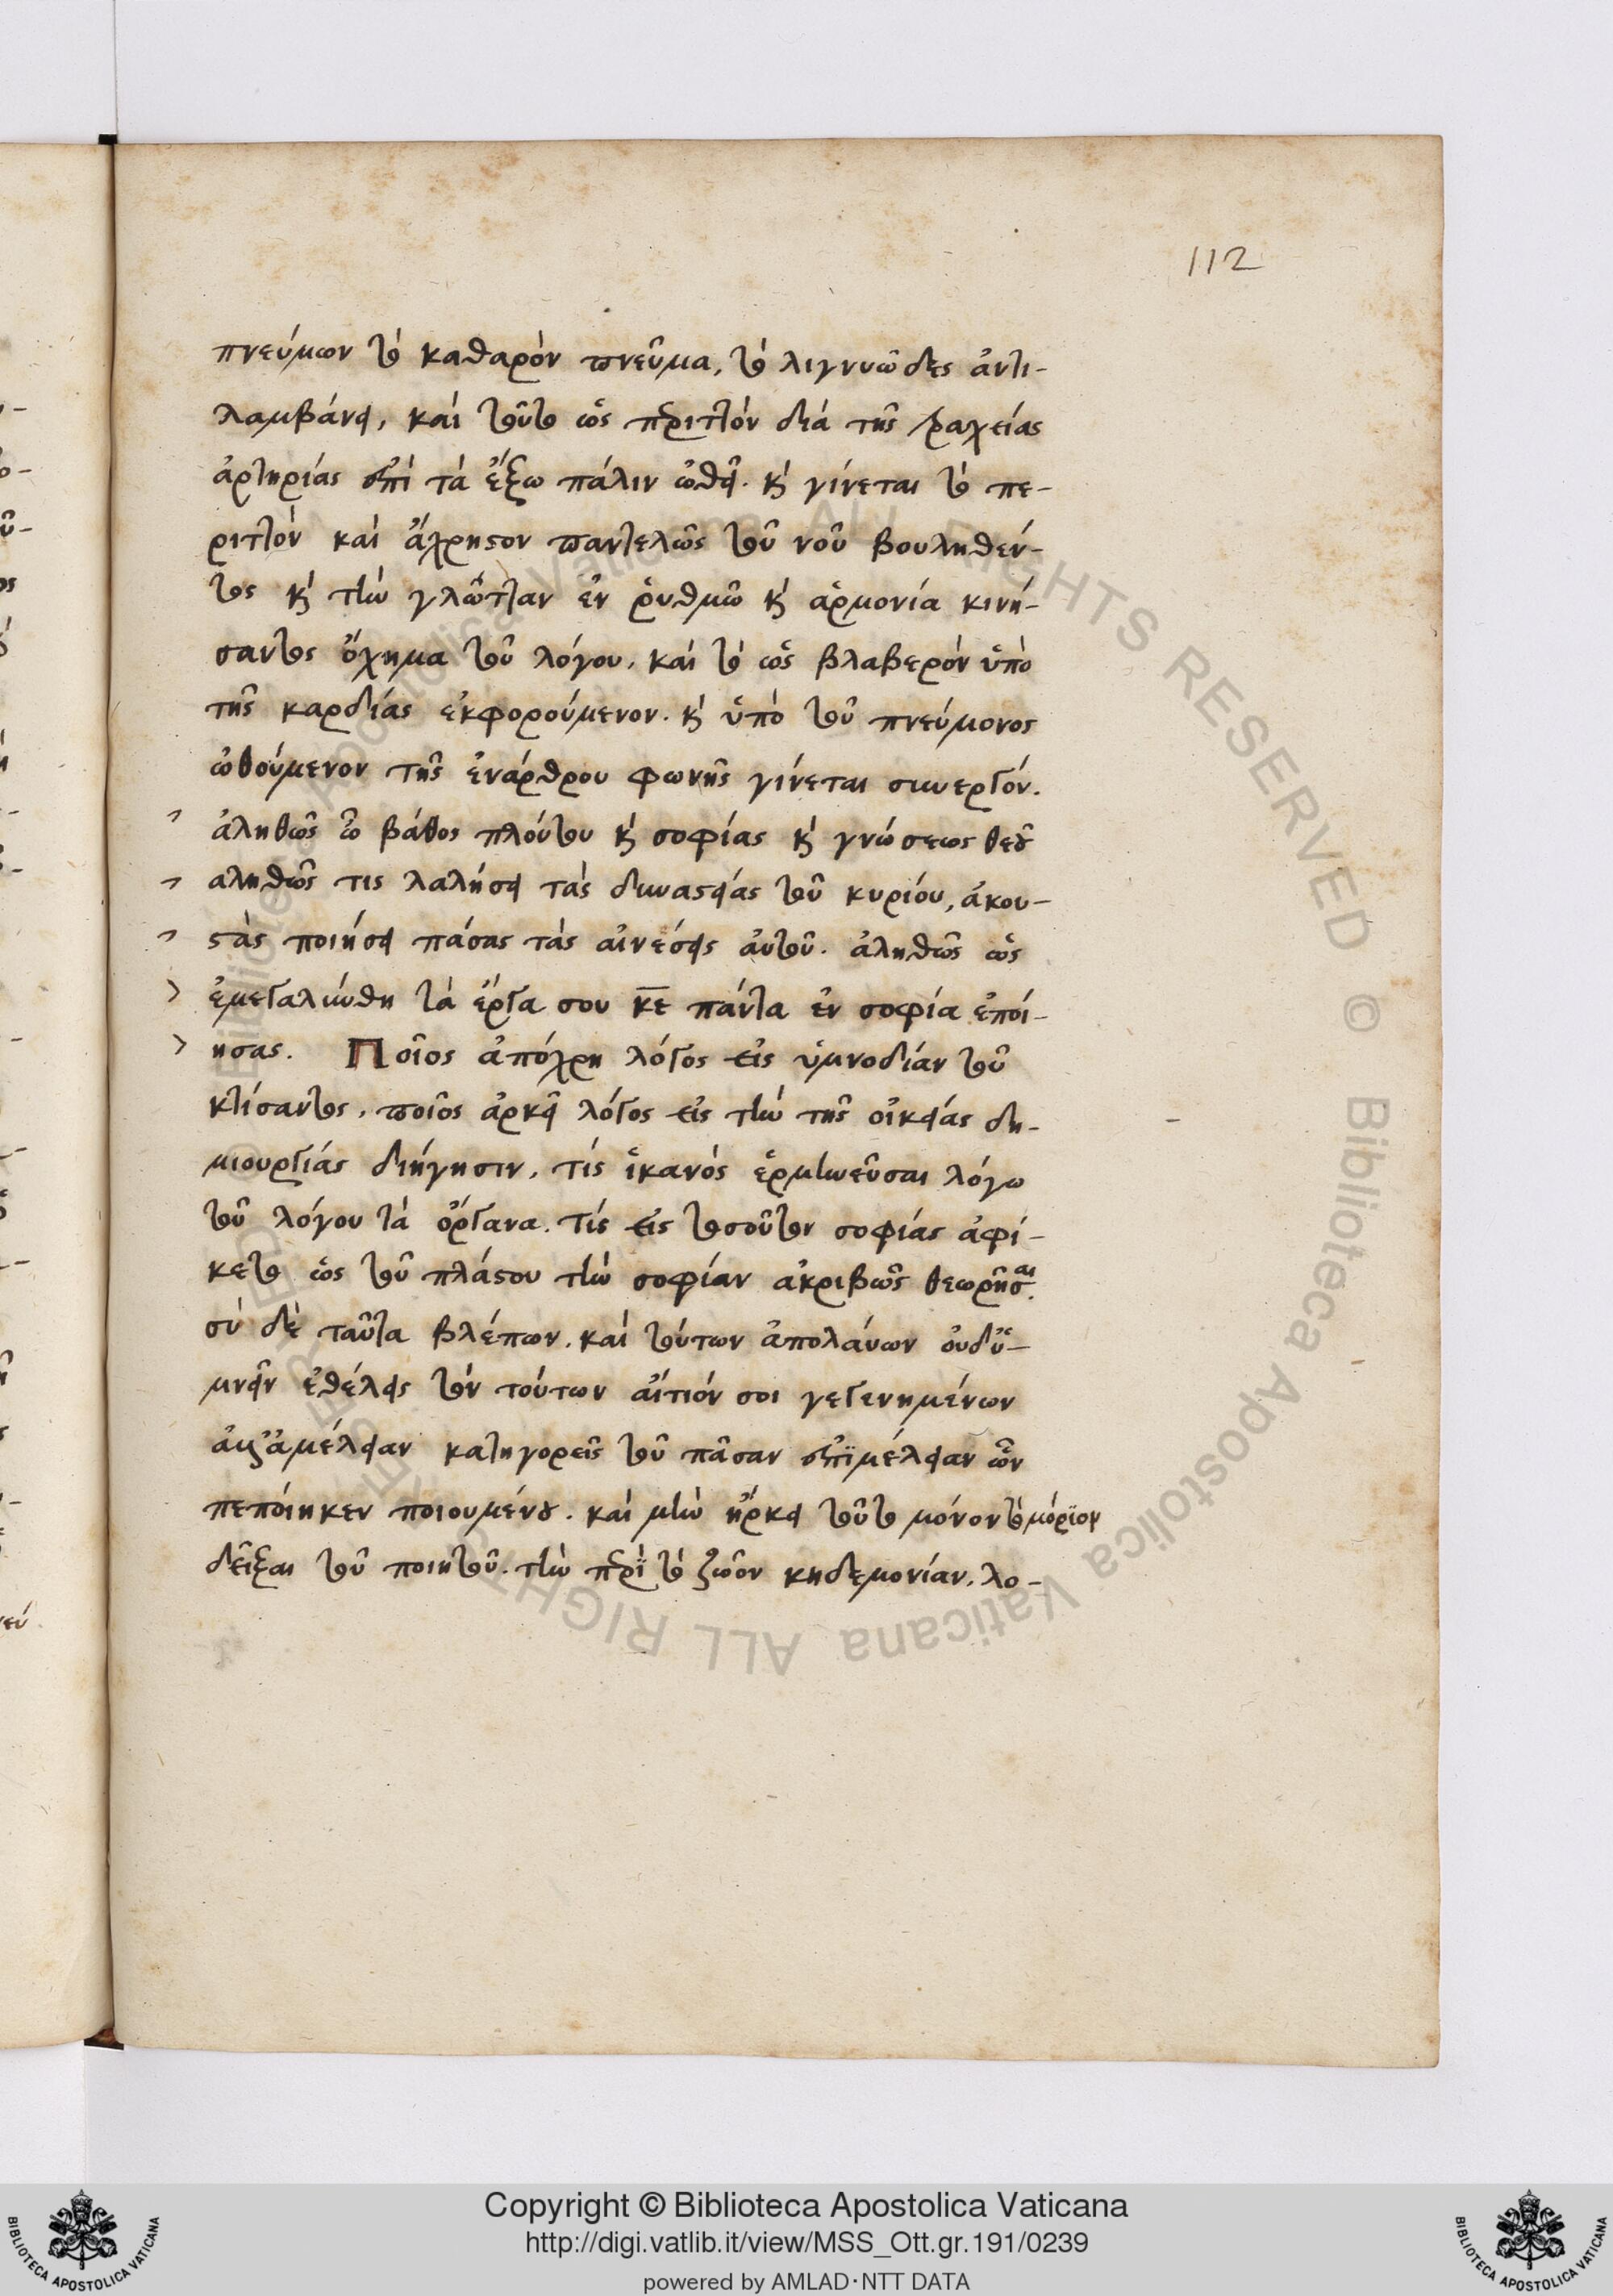 112
πνεύμων τὸ καθαρὸν πνεῦμα, τὸ λιγνυῶδες ἀντι-
λαμβάνει, καὶ τοῦτο ὡς περιττὸν διὰ τῆς τραχείας
ἀρτηρίας ἐπὶ τὰ ἔξω πάλιν ὠθεῖ. καὶ γίνεται τὸ πε-
ριττὸν καὶ ἄχρηστον παντελῶς τοῦ νοῦ βουληθέν-
τος καὶ τὴν γλῶτταν ἐν ῥυθμῶ καὶ ἁρμονία κινή-
σαντος ὄχημα τοῦ λόγου. καὶ τὸ ὡς βλαβερὸν ὑπὸ
τῆς καρδίας ἐκφορούμενον. καὶ ὑπὸ τοῦ πνεύμονος
ὠθούμενον τῆς ἐνάρθρου φωνῆς γίνεται συνεργόν.
ἀληθῶς ὦ βάθος πλούτου καὶ σοφίας καὶ γνώσεως θεοῦ
αληθῶς τις λαλήσει τὰς δυναστείας τοῦ κυρίου, ἀκου-
στὰς ποιήσει πάσας τὰς αἰνέσεις ἀυτοῦ. ἀληθῶς ὡς
ἐμεγαλύνθη τὰ ἔργα σου κε πάντα ἐν σοφία ἐποί-
ησας. Ποῖος ἀπόχρη λόγος εἰς ὑμνοδίαν τοῦ
κτίσαντος. ποῖος ἀρκεῖ λόγος εἰς τὴν τῆς οἰκείας δη-
μιουργίας διήγησιν. τίς ἱκανὸς ἑρμηνεῦσαι λόγω
τοῦ λόγου τὰ ὄργανα. τίς εἰς τοσοῦτον σοφίας ἀφί-
κετο ὡς τοῦ πλάστου τὴν σοφίαν ἀκριβῶς θεωρῆσαι.
σὺ δὲ ταῦτα βλέπων. καὶ τούτων ἀπολαύων ὀυδ' ὑ-
μνεῖν ἐθέλεις τὸν τούτων αἴτιόν σοι γεγενημένων
ἀλλ' ἀμέλειαν κατηγορεῖς τοῦ πᾶσαν ἐπιμέλειαν ὧν
πεπόιηκεν ποιουμένου. καὶ μὴν ἤρκει τοῦτο μόνον τὸ μόριον
δεῖξαι τοῦ ποιητοῦ. τὴν περὶ τὸ ζῶον κηδεμονίαν. λο-
Copyright © Biblioteca Apostolica Vaticana
http://digi.vatlib.it/view/MSS_Ott.gr.191/0239
powered by AMLAD·NTT DATA